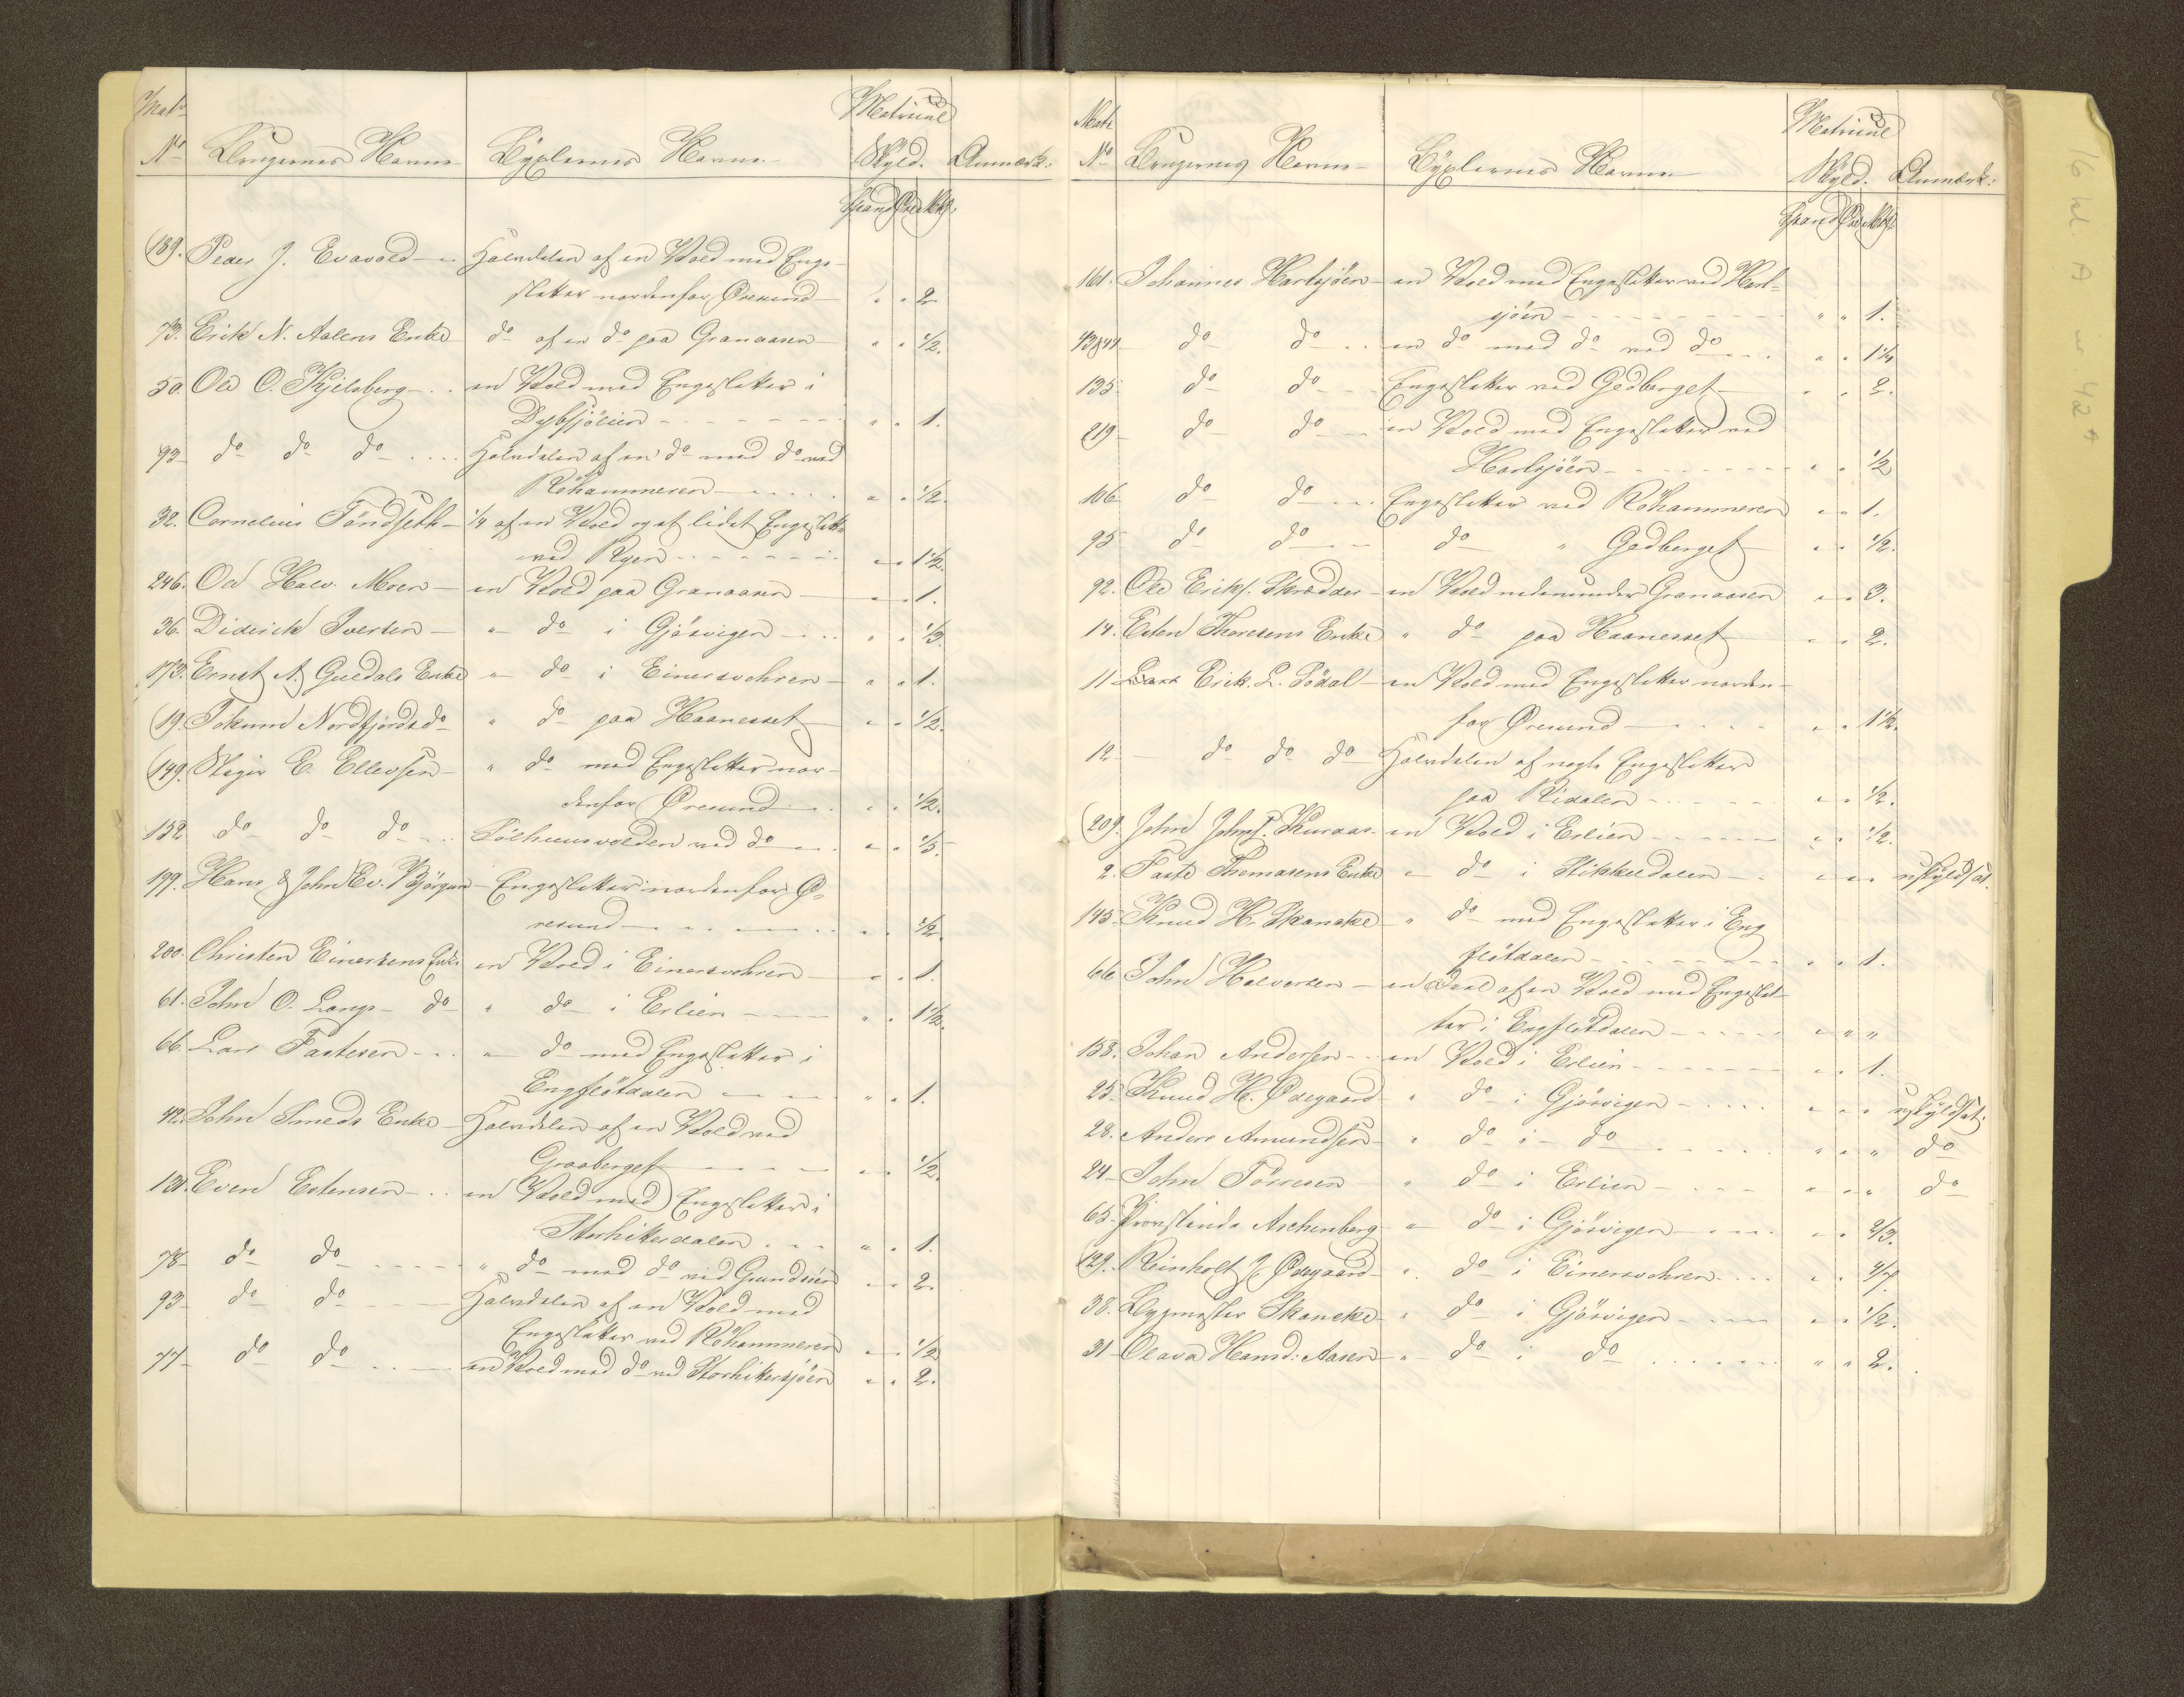 Matr
No Brugernes Navne Byxlernes Navne Matricul Skyld. Anmærk:
Spand Øre Mkl.
189. Peder J. Evavold - Halvdelen af en Vold med Enge-
sletter nordenfor Øresund " " 2
73. Erick N. Aalens Enke do af en do paa Granaasen " " 1/2.
50. Ole O. Kjelsberg - en Vold med Engesletter i
Dybsjölien " " 1.
93 do do do Halvdelen af en do med do ved
Röhammeren " " 1/2.
32. Cornelius Töndseth - 1/4 af en Vold og et lidet Engeslette
ved Ryen " " 1 1/2.
246. Ole Halv. Moen - en Vold paa Granaasen " " 1.
36. Diderich Iversen - " do i Gjösvigen " " 1/3.
173. Ernst A. Guldals Enke " do i Einersvohren " " 1.
19. Tokum Nordfjords do " do paa Haanesset " " 1/2.
149. Steger E. Ellevsen - " do med Engesletter nor-
denfor Øresund " " 1/2.
152 do do do Tolhuusvolden ved do " " 1/5.
199. Hans & John Ev. Bjørgen - Engesletter nordenfor Ø-
resund " " 1/2.
200. Christen Einersens Enke en Vold i Einersvohren " " 1.
61. John O. Langs do " do i Erlien " " 1 1/2.
66. Lars Fastesen " do med Engesletter i
Engflötdalen " " 1.
42. John Smeds Enke - Halvdelen af en Vold ved
Graaberget " " 1/2.
131. Even Estensen en Vold med Engesletter i
Storhiterdalen " " 1.
78 do do " do med do ved Grundsöen " " 2.
93 do do Halvdelen af en Vold med
Engesletter ved Röhammeren " " 1/2
77 do do en Vold med do ved Storhitersjöen " " 2.
Matr
No Brugernes Navne Byxlernes Navne Matricul Skyld. Anmærk:
Spand Øre Mkl
161. Johannes Harsjöen - en Vold med Engesletter ved Har-
sjöen " " 1.
43&44 do do en do med do ved do " " 1 1/2
135 do do Engesletter ved Gedberget " " 2.
219 do do en Vold med Engesletter ved
Harsjöen " " 1/2
106 do do Engesletter ved Röhammeren " " 1.
95 do do do " Gedberget " " 1/2.
92. Ole Ericks. Skrædder - en Vold nedenunder Granaasen " " 3.
14. Esten Thoresens Enke " do paa Haanesset " " 2.
11 Erick. L. Södal - en Vold med Engesletter norden-
for Øresund " " 1 1/2.
12 do do do Halvdelen af nogle Engesletter
paa Kidalen " " 1/2.
209. John Johns. Kuraas en Vold i Erlien " " 1/2.
2. Faste Thomasens Enke " do i Stikkeldalen " " " uskyldsat.
145 Knud H. Skancke " do med Engesletter i Eng
flötdalen " " 1.
66 John Halvorsen - en Deel af en Vold med Engeslet-
ter i Engflötdalen " " "
158. Johan Andersen en Vold i Erlien " " 1.
25 Knud H. Ødegaard " do i Gjösvigen " " " uskyldsat.
28. Anders Amundsen " do i do " " " do
24 John Törresen " do i Erlien " " " do
65 Provstinde Aschenberg " do i Gjösvigen " " 2/3.
129. Reinholt J. Ødegaard " do i Einersvohren
38. Bygmester Skancke " do i Gjösvigen " " 1/2.
31 Olava Hansd: Aasen " do i do " " 2.
16 kl. A nr 42 A